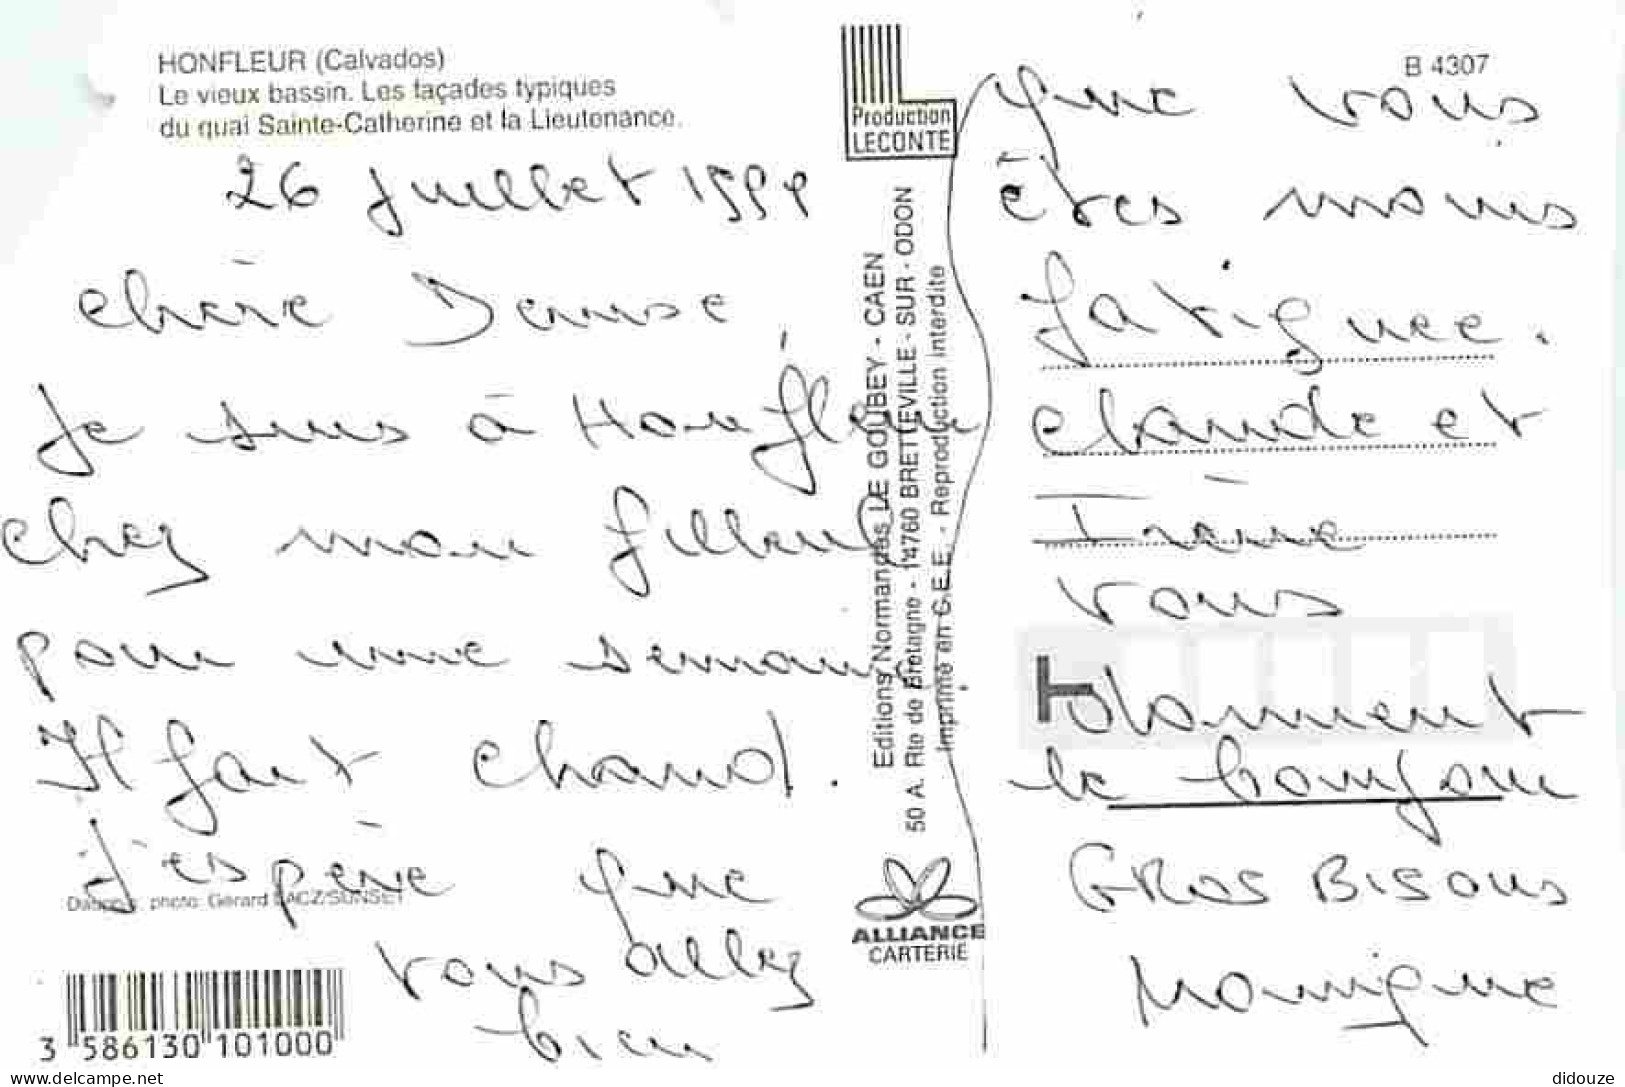 HONFLEUR (Calvados)
Le vieux bassin. Les façades typiques
du quai Sainte-Catherine et la Lieutenance.
26 Juillet 1999
chère Denise,
Je suis à Honfleur
chez mon filleul
pour une semaine.
Il fait chaud.
j'espère que
vous allez
bien
Diapo photo: Gérard LACZ/SUNSET
3 586130 101000
Production
LECONTE
Editions Normandes LE GOUBEY - CAEN
50 A. Rte de Bretagne - 14760 BRETTEVILLE - SUR - ODON
Imprimé en C.E.E. - Reproduction interdite
ALLIANCE
CARTERIE
B 4307
que vous
êtes moins
fatiguée.
Claude et
Irène
vous
donnent
le bonjour
GROS BISOUS
Monique
didouze